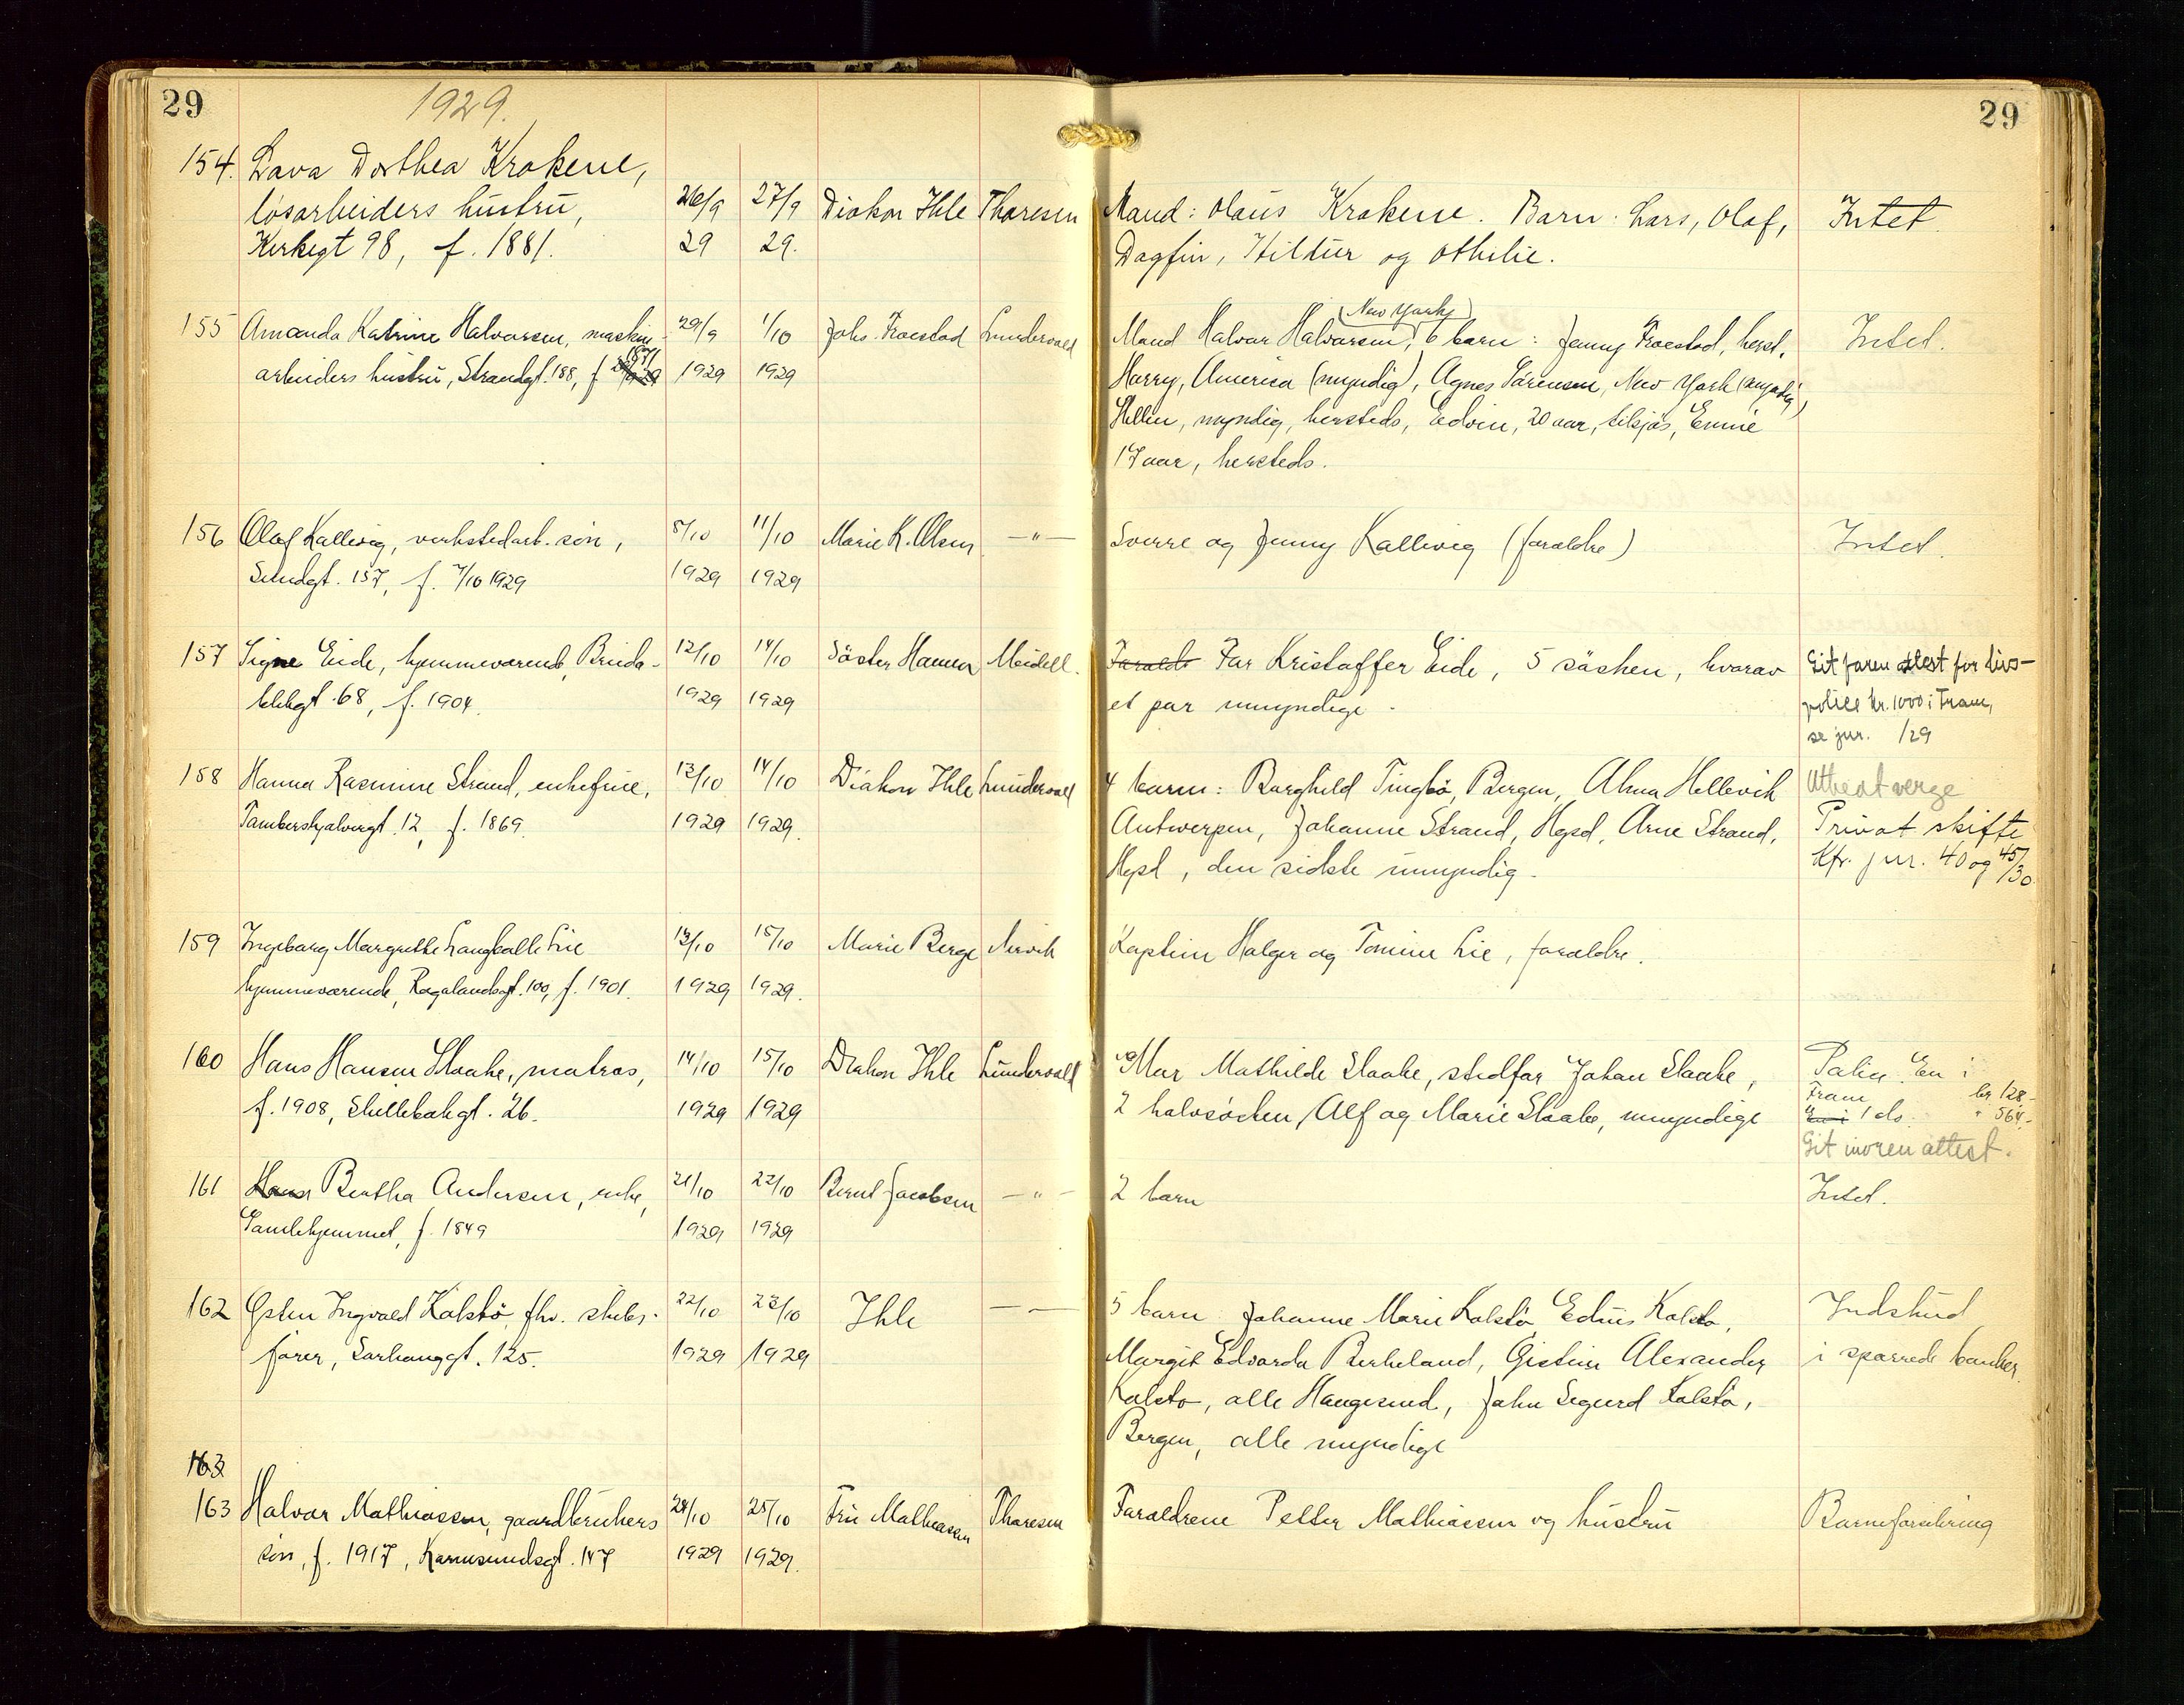 29 1929. 29
154. Lava Dorthea Krokene,
løsarbeiders hustru, 26/9 27/9 Diakon Ihle Thoresen Mand: Olaus Krokene. Barn: Lars, Olaf, Intet.
Kirkegt 98, f. 1881. 29 29. Dagfin, Hildur og Othilie.
(New York)
155 Amanda Katrine Halvorsen, maskin- 29/9 1/10 Johs. Fraestad Lundervold Mand Halvor Halvorsen, 6 barn: Jenny Fraestad, herst. Intet.
1871
arbeiders hustru, Strandgt. 188, f. 1929 1929 Harry, America (myndig), Agnes Sørensen, New York (myndig)
Hellen, myndig, hersteds, Edvin, 20 aar, tilsjøs, Emmie
17 aar, hersteds.
156 Olaf Kallevig, verkstedarb. søn, 8/10 11/10 Marie K. Olsen —"— Sverre og Jenny Kallevig (foraldre) Intet.
Sundgt. 157, f. 7/10 1929 1929 1929
157 Signe Eide, hjemmeværende, Breida- 12/10 14/10 Søster Hanna Meidell. Far Kristoffer Eide, 5 søsken, hvorav Git faren attest for livs-
blikgt. 68, f. 1904. 1929 1929 et par umyndige. police kr. 1000 i Fram,
se jur. /29
158 Hanna Rasmine Strand, enkefrue, 13/10 14/10 Diakon Ihle Lundervold 4 barn: Borghild Tingbø, Bergen, Alma Hellevik Utbedt verge
Tamberskjelvergt. 12, f. 1869. 1929 1929. Antwerpen, Johanne Strand, Hgsd, Arne Strand, Privat skifte
Hgsd, den sidste umyndig. Kfr. jur. 40 og 45/30.
159 Ingeborg Margrethe Langballe Lie 13/10 15/10 Marie Berge Nervik Kaptein Holger og Tomine Lie, foraldre.
hjemmeværende, Rogalandsgt. 100, f. 1901. 1929 1929.
160 Hans Hansen Slaake, matros, 14/10 15/10 Diakon Ihle Lundervold Mor Mathilde Slaake, stedfar Johan Slaake, Police. En i
f. 1908, Skillebækgt. 26. 1929 1929 2 halvsøsken, Alf og Marie Slaake, umyndige Fram kr 128.-
1 do. " 564.-
Git moren attest.
161 Bertha Andersen, enke, 21/10 22/10 Bernt Jacobsen —"— 2 barn Intet.
Gamlehjemmet, f. 1849 1929 1929
162 Østen Ingvald Kalstø, fhv. skibs- 22/10 23/10 Ihle — — 5 barn Johanne Marie Kalstø, Edvis Kalstø, Indskud
fører, Sørhauggt. 125. 1929 1929 Margit Edvarda Birkeland, Gistein Alexander i sparrede banker.
Kalstø, alle Haugesund, John Sigurd Kalstø,
Bergen, alle myndige
163
163 Halvor Mathiassen, gaardbrukers 24/10 25/10 Fru Mathiassen Thoresen Foraldrene Petter Mathiassen og hustru Barneforsikring
søn, f. 1917, Karmsundsgt. 147 1929 1929.